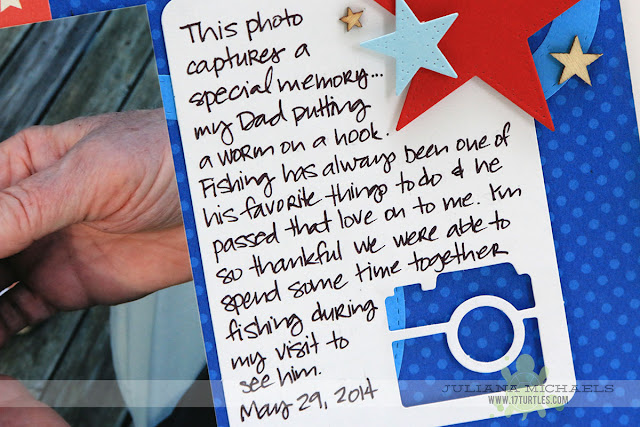 This photo
captures a
special memory...
my Dad putting
a worm on a hook.
Fishing has always been one of
his favorite things to do & he
passed that love on to me. I'm
so thankful we were able to
spend some time together
fishing during
my visit to
see him.
May 29, 2014
JULIANA MICHAELS
WWW.17TURTLES.COM